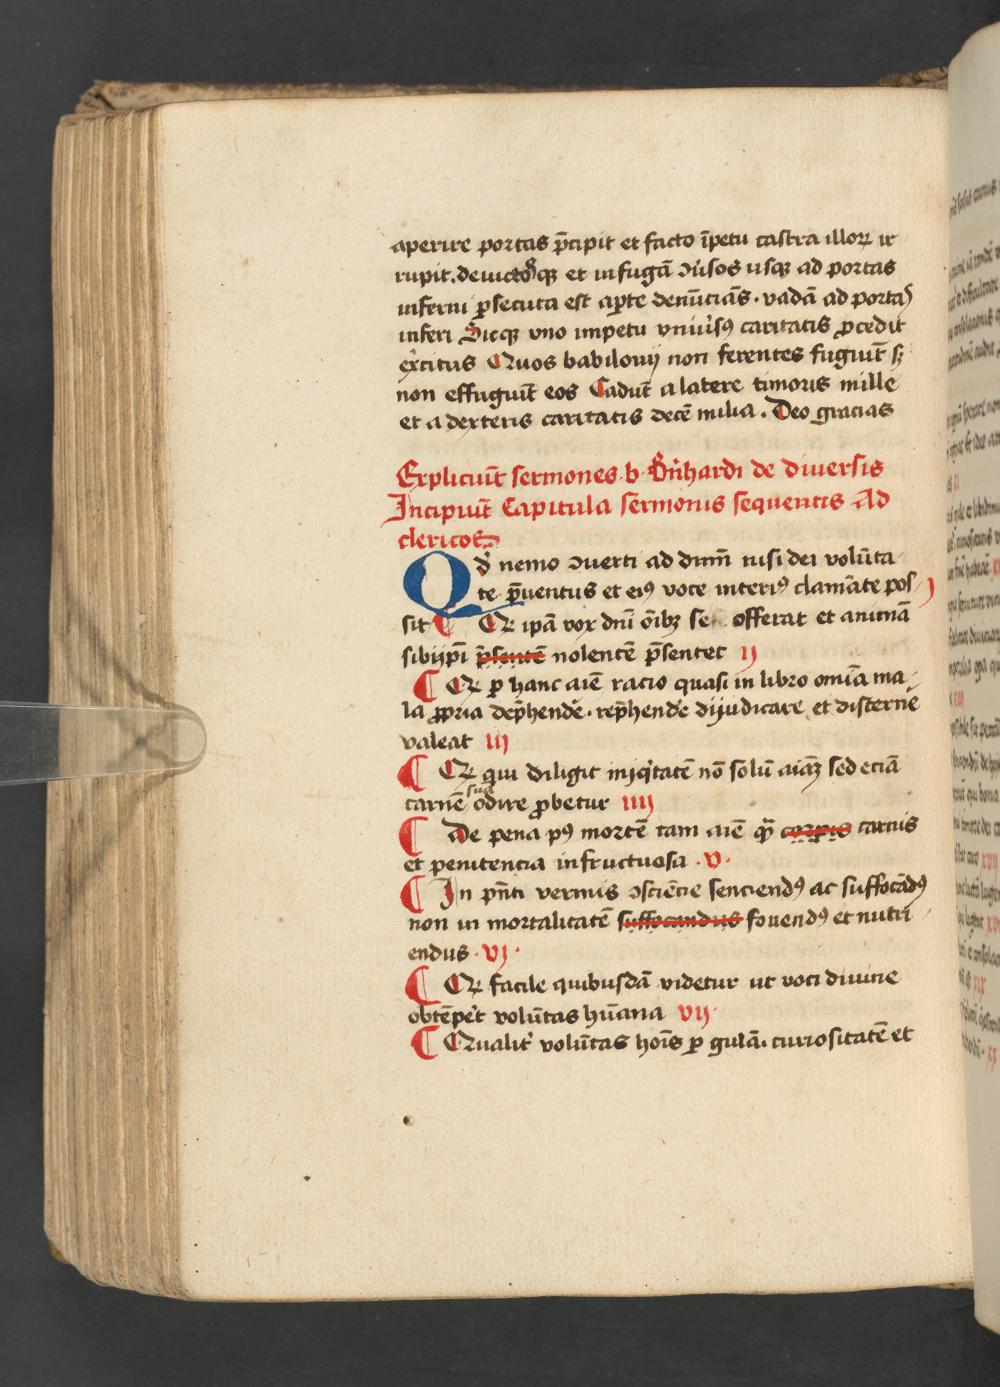 aperire portas p̄cipit et facto īpetu castra illoꝝ ir
rupit. deuictosqꝫ et in fugā ↄu̇sos usqꝫ ad portas
inferni ꝑsecuta est aꝑte denūciās · vadā ad portas
inferi Sicqꝫ vno impetu vniu̇sꝰ caritatis ꝓcedit
ex̄citus Quos babilonij non ferentes fugiūt sꝫ
non effugiūt eos Cadūt a latere timoris mille
et a dexteris caritatis decē milia . Deo gracias
Expliciūt sermones b Bn̄hardi de diuersis
Incipiūt Capitula sermonis sequentis Ad
clericos
Qd̓ nemo ↄuerti ad dnm̄ nisi dei volūta
te p̄uentus et eiꝰ voce interiꝰ clamāte pos
sit I
¶ Qꝫ ipā vox dnī oībꝫ se offerat et animā
sibijpī p̄sentē nolentē p̄sentet IJ
¶ Qꝫ ꝑ hanc aīe racio quasi in libro omīa ma
la ꝓpria dep̄hende̓. rep̄hende̓ dijudicare et discerne̓
valeat IIJ
¶ Qꝫ qui diligit iniqͥtatē nō solū aīaꝫ sed eciā
carnē suā odire ꝓbetur IIIJ
¶ De pena pꝰ mortē tam aīe qͣꝫ corpis carnis
et penitencia infructuosa · V ·
¶ In pn̄ti vermis ↄsciēcie senciendꝰ ac suffocādꝰ
non in mortalitatē suffocandus fouendꝰ et nutri
endus · VJ ·
¶ Qꝫ facile quibusdā videtur ut voci diuine
obtēpe̓t volūtas hūana VIJ
¶ Qualit̓ volūtas hoīs ꝑ gulā. curiositatē et